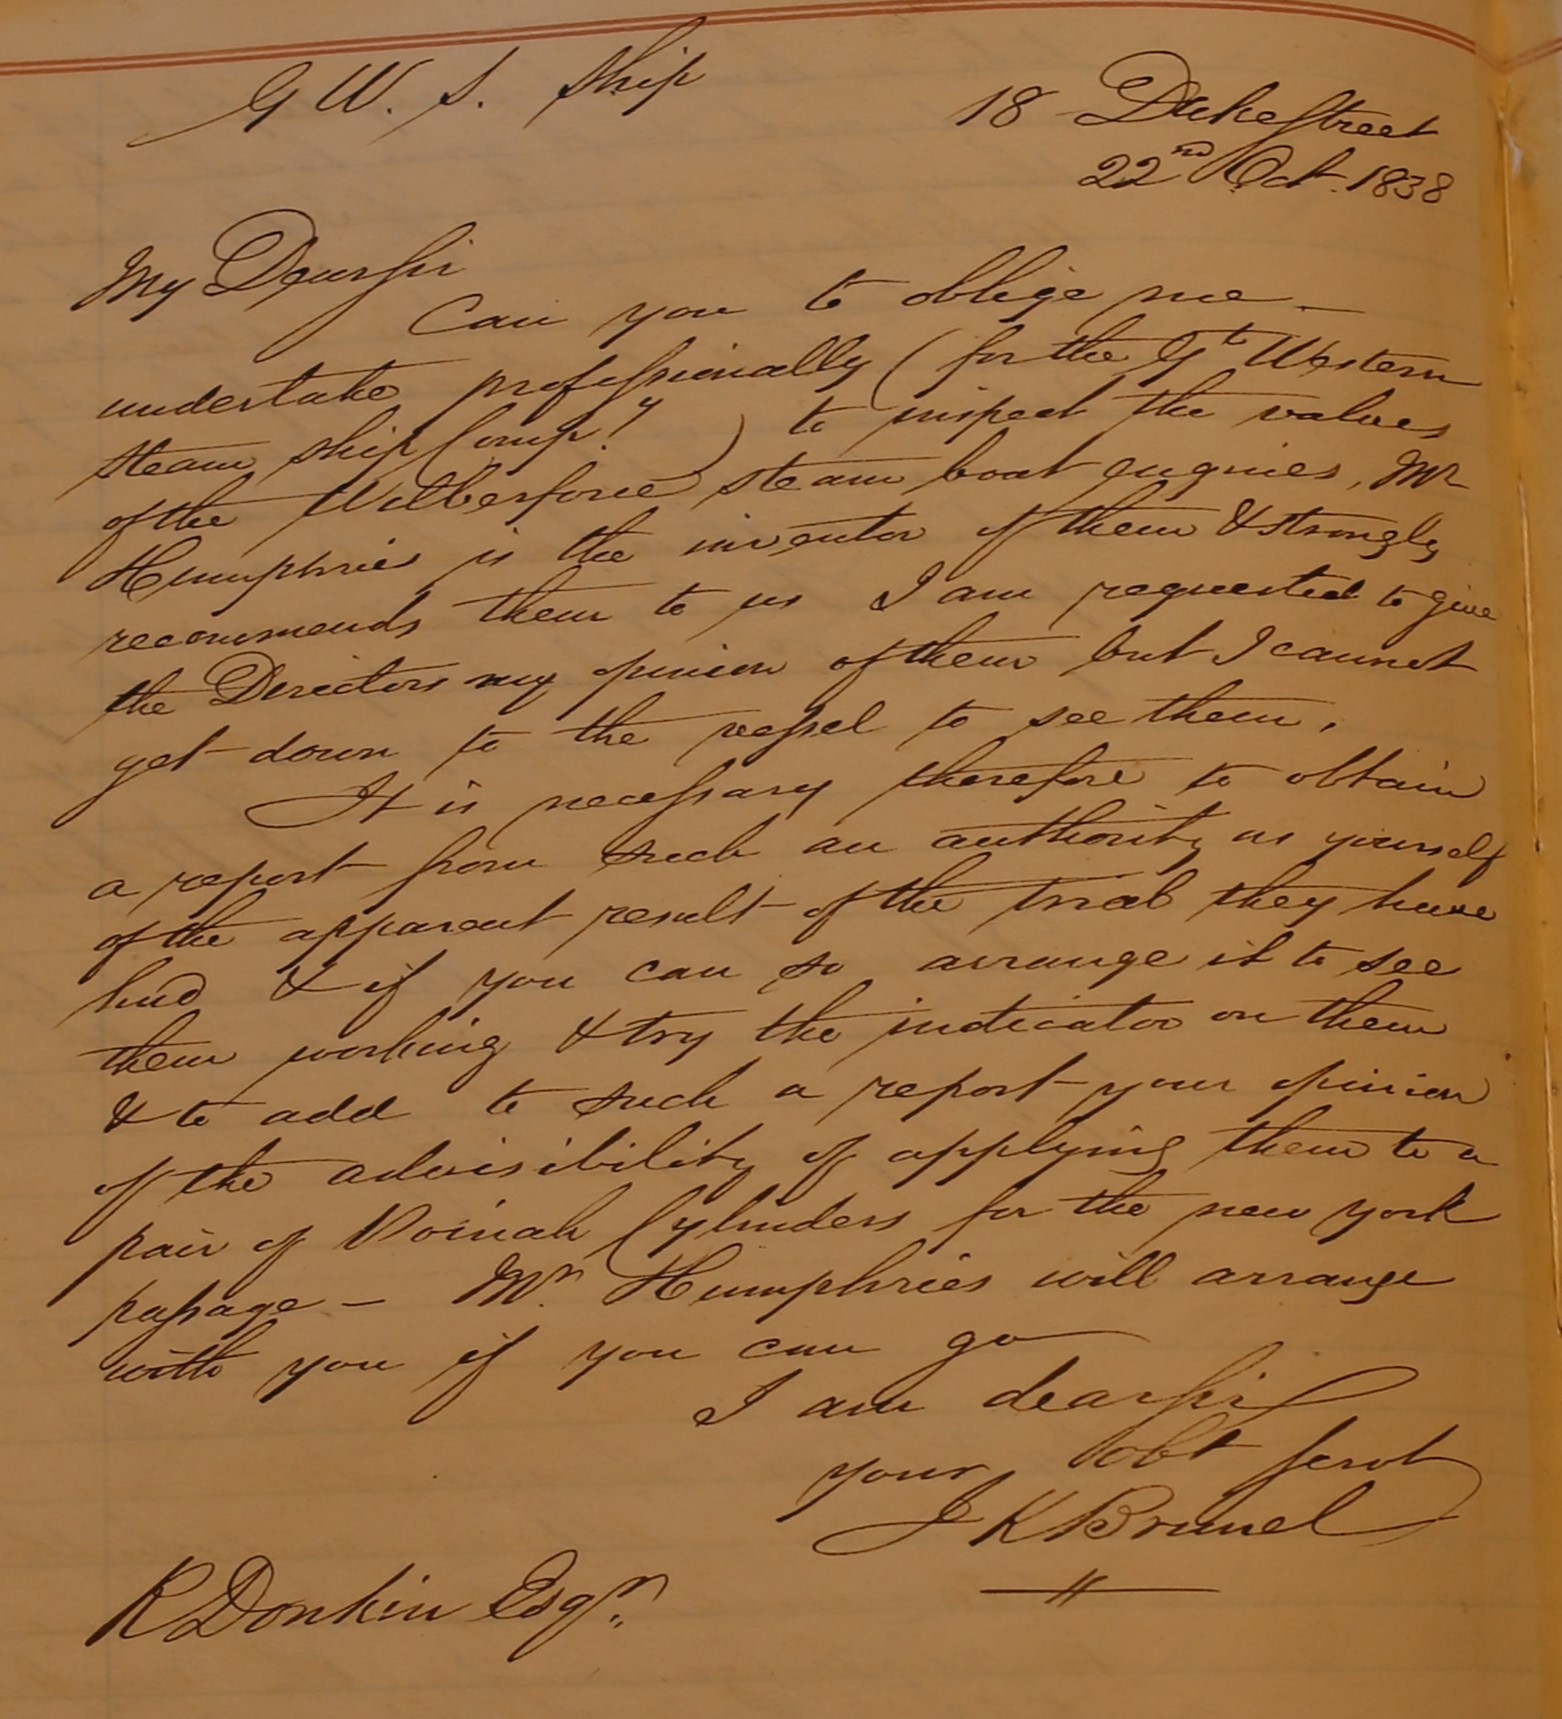 G W. S. Ship
18 Duke Street
22nd Oct. 1838
My Dear Sir
Can you to oblige me –
undertake professionally (for the Gt Western
steam ship Compy) to inspect the valves
of the Wilberforce steam boat engines, Mr
Humphries is the inventor of them & strongly
recommends them to us I am requested to give
the Directors my opinion of them but I cannot
get down to the vessel to see them.
It is necessary therefore to obtain
a report from such an authority as yourself
of the apparent result of the trial they have
had & if you can so arrange it to see
them working & try the indicator on them
& to add to such a report your opinion
of the advisibility of applying them to a
pair of Cylinders for the new york
passage – Mr. Humphries will arrange
with you if you can go
I am dear sir
your obt servt
I K Brunel
R Donkin Esqr.